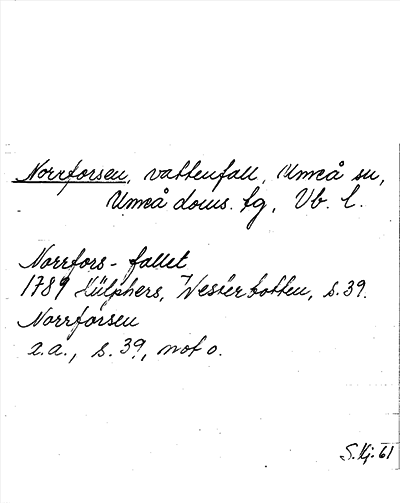 Norrforsen, vattenfall, Umeå sn,
Umeå doms. tg, Vb. l.
Norrfors-fallet
1789 Hülphers, Westerbotten, s. 39.
Norrforsen
a.a., s. 39, not o.
S. Hj. 61